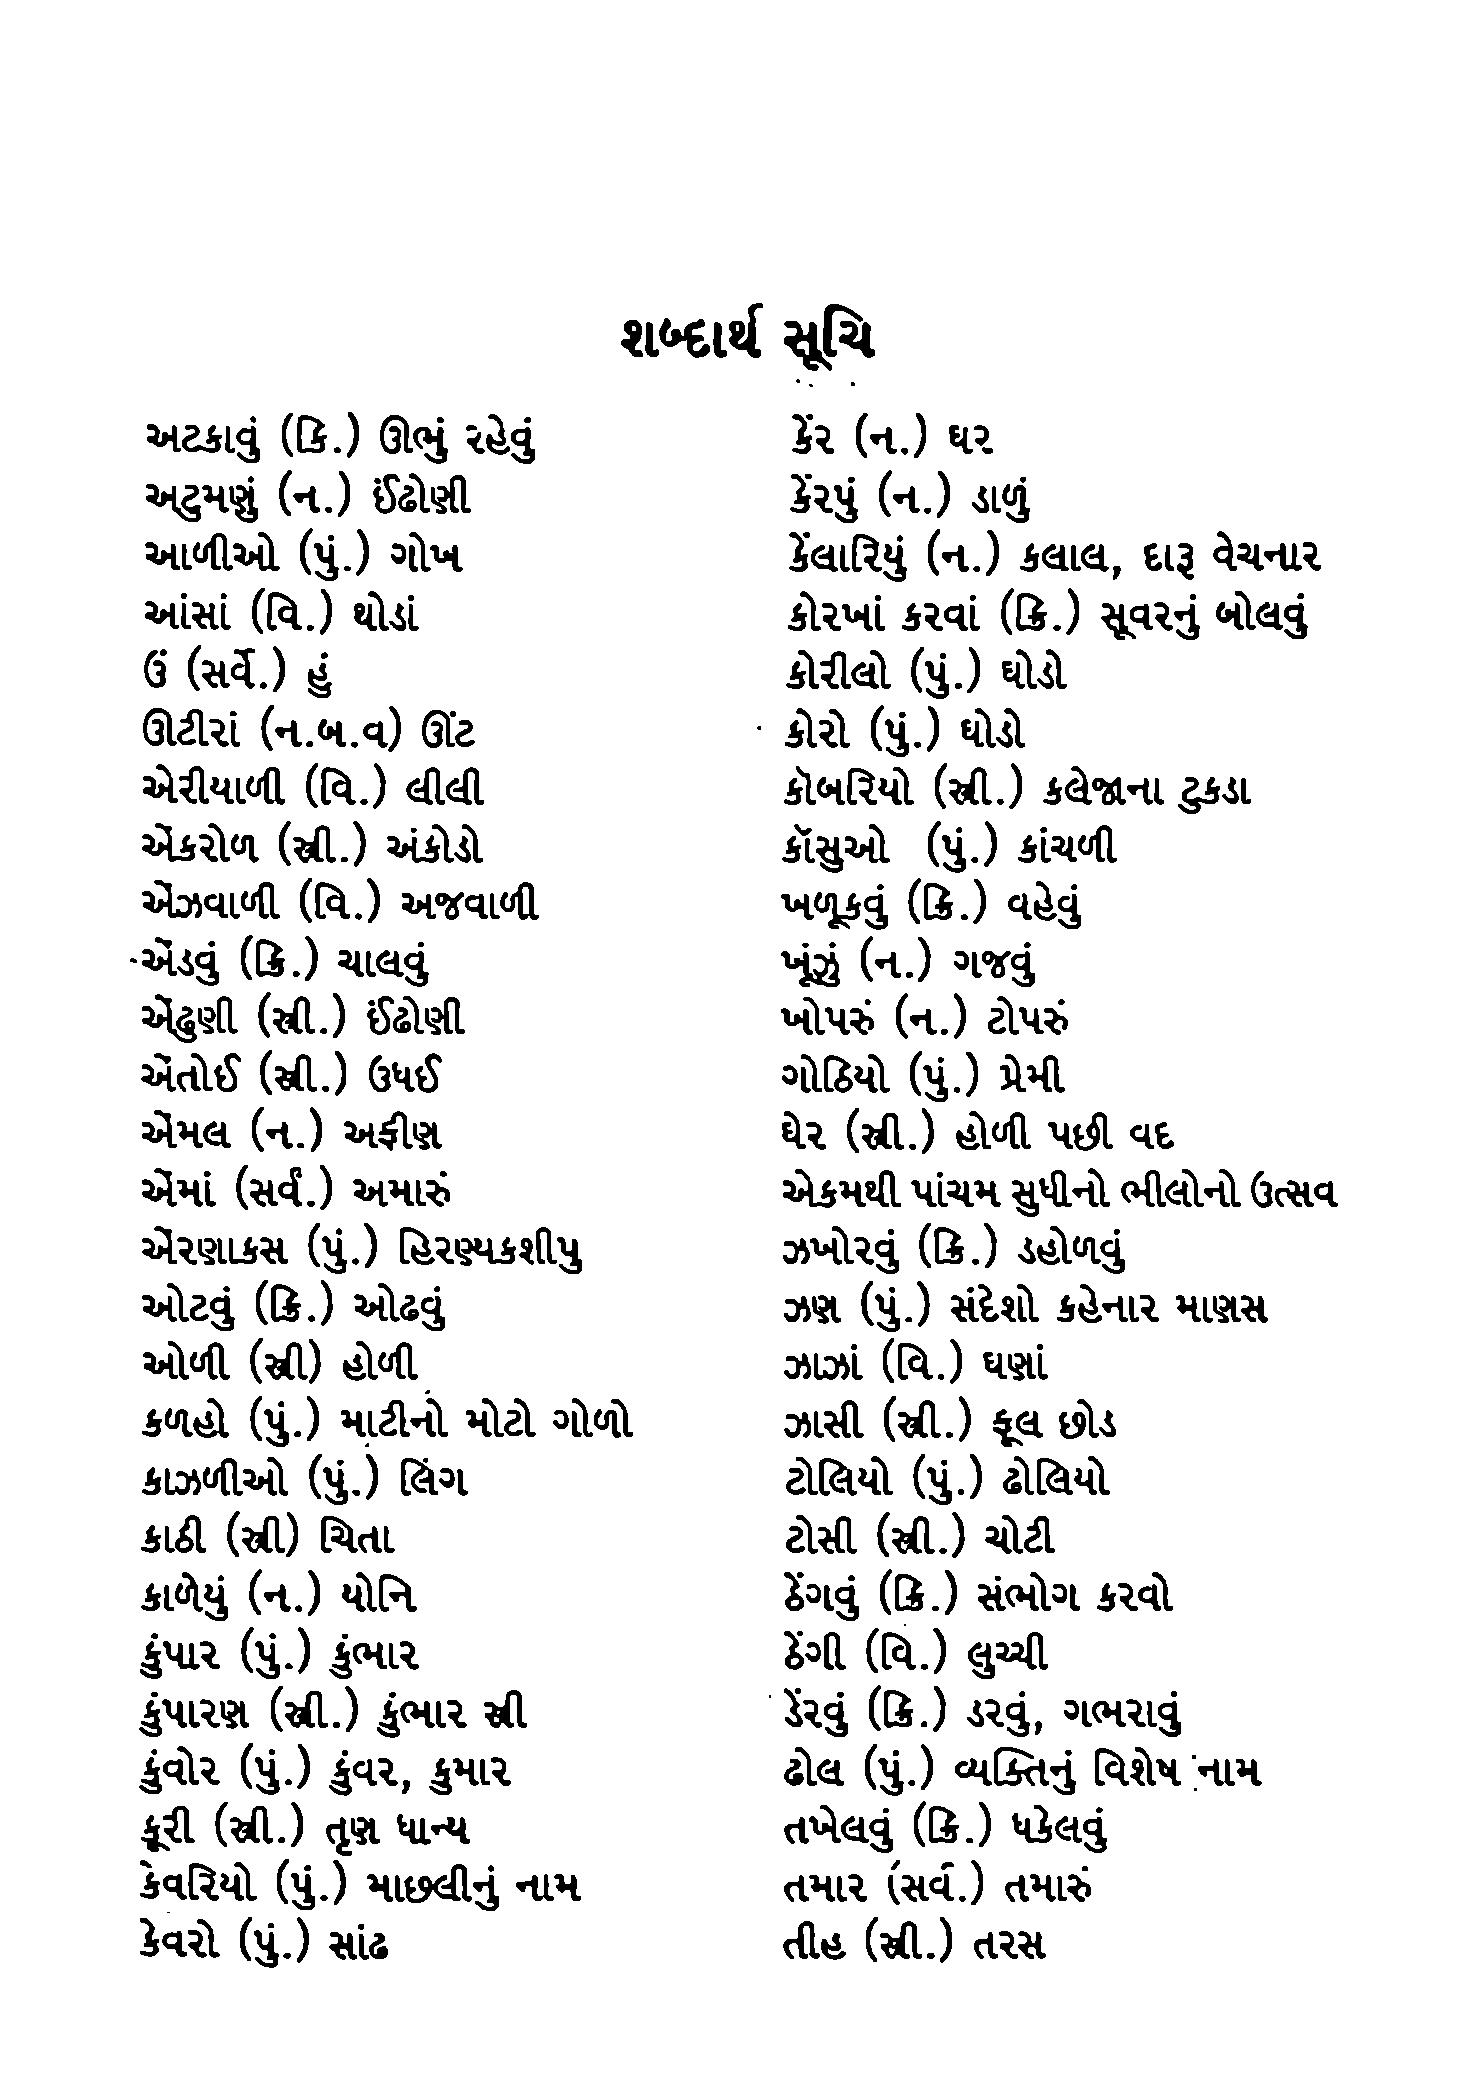 શબ્દાર્થ સૂચિ
અટકાવું (ક્રિ.) ઊભું રહેવું
અટુમણું (ન.) ઈંઢોણી
આળીઓ (પું.) ગોખ
આંસાં (વિ.) થોડાં
ઉં (સર્વે.) હું
ઊટીરાં (ન.બ.વ) ઊંટ
એરીયાળી (વિ.) લીલી
એંકરોળ (સ્ત્રી.) અંકોડો
એંઝવાળી (વિ.) અજવાળી
એંડવું (ક્રિ.) ચાલવું
એંઢુણી (સ્ત્રી.) ઈંઢોણી
એંતોઈ (સ્ત્રી.) ઉધઈ
એંમલ (ન.) અફીણ
એંમાં (સર્વં.) અમારું
એંરણાકસ (પું.) હિરણ્યકશીપુ
ઓટવું (ક્રિ.) ઓઢવું
ઓળી (સ્ત્રી) હોળી
કળહો (પું.) માટીનો મોટો ગોળો
કાઝળીઓ (પું.) લિંગ
કાઠી (સ્ત્રી) ચિતા
કાળેયું (ન.) યોનિ
કુંપાર (પું.) કુંભાર
કુંપારણ (સ્ત્રી.) કુંભાર સ્ત્રી
કુંવોર (પું.) કુંવર, કુમાર
કૂરી (સ્ત્રી.) તૃણ ધાન્ય
કેવરિયો (પું.) માછલીનું નામ
કેવરો (પું.) સાંઢ
કેંર (ન.) ઘર
કેંરપું (ન.) ડાળું
કેંલારિયું (ન.) કલાલ, દારૂ વેચનાર
કોરખાં કરવાં (ક્રિ.) સૂવરનું બોલવું
કોરીલો (પું.) ઘોડો
કોરો (પું.) ઘોડો
કૉબરિયો (સ્ત્રી.) કલેજાના ટુકડા
કૉસુઓ (પું.) કાંચળી
ખળૂકવું (ક્રિ.) વહેવું
ખૂંઝું (ન.) ગજવું
ખોપરું (ન.) ટોપરું
ગોઠિયો (પું.) પ્રેમી
ઘેર (સ્ત્રી.) હોળી પછી વદ
એકમથી પાંચમ સુધીનો ભીલોનો ઉત્સવ
ઝખોરવું (ક્રિ.) ડહોળવું
ઝણ (પું.) સંદેશો કહેનાર માણસ
ઝાઝાં (વિ.) ઘણાં
ઝાસી (સ્ત્રી.) ફૂલ છોડ
ટોલિયો (પું.) ઢોલિયો
ટોસી (સ્ત્રી.) ચોટી
ઠેંગવું (ક્રિ.) સંભોગ કરવો
ઠેંગી (વિ.) લુચ્ચી
ડેંરવું (ક્રિ.) ડરવું, ગભરાવું
ઢોલ (પું.) વ્યક્તિનું વિશેષ નામ
તખેલવું (ક્રિ.) ધકેલવું
તમાર (સર્વ.) તમારું
તીહ (સ્ત્રી.) તરસ